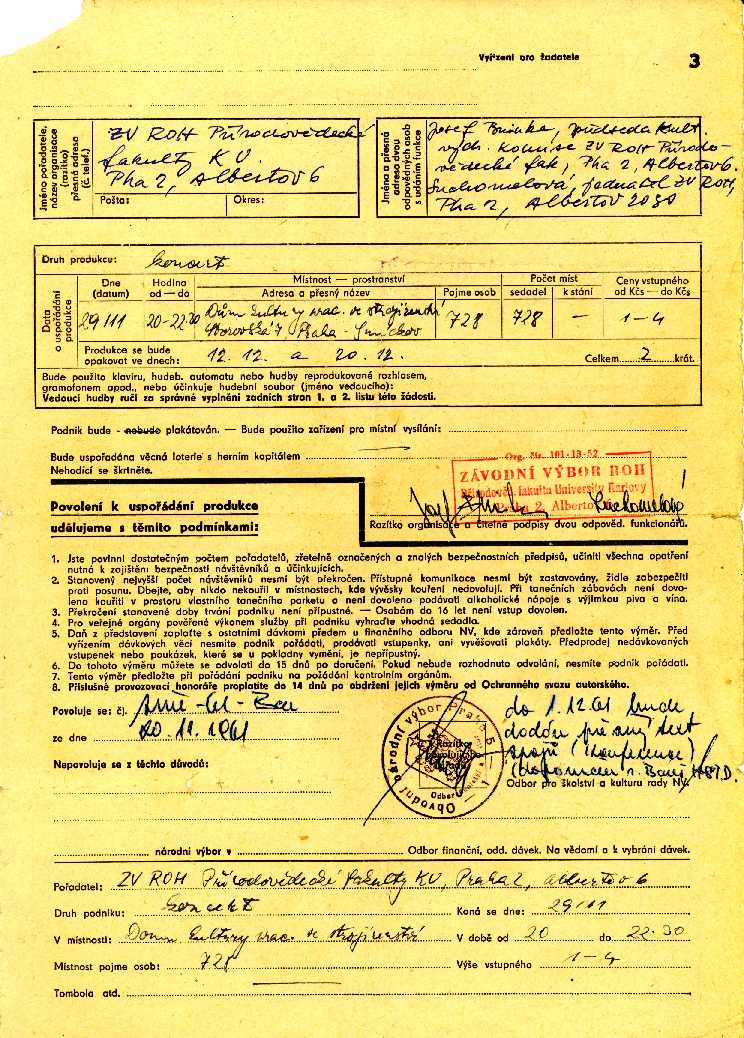 Vyřízení pro žadatele
3
Jméno pořadatele,
název organisace
(razítko)
přesná adresa
(č. telef.)
ZV ROH Přírodovědecké
fakulty K U.
Pha 2, Albertov 6
Pošta: Okres:
Jména a přesná
adresa dvou
odpovědných osob
s udáním funkce
Josef Brinke, předseda kult.
vých. komise ZV ROH Přírodo-
vědecké fak, Pha 2, Albertov 6.
Suchomelová, jednatel ZV ROH,
Pha 2, Albertov 2030
Druh produkce: koncert
Data
o uspořádání
produkce
Dne
(datum)
Hodina
od — do
Místnost — prostranství
Adresa a přesný název
Pojme osob
Počet míst
sedadel
k stání
Ceny vstupného
od Kčs — do Kčs
29/11 20-22.30 Dům kultury prac. ve strojírenství 728 728 — 1-4
Praha - Smíchov
Produkce se bude
opakovat ve dnech: 12. 12. a 20. 12. Celkem 2 krát.
Bude použito klavíru, hudeb. automatu nebo hudby reprodukované rozhlasem,
gramofonem apod., nebo účinkuje hudební soubor (jméno vedoucího):
Vedoucí hudby ručí za správné vyplnění zadních stran 1. a 2. listu této žádosti.
Podnik bude - nebude plakátován. — Bude použito zařízení pro místní vysílání:
Bude uspořádána věcná loterie s herním kapitálem
Nehodící se škrtněte.
Org. čís. 101-13-52
ZÁVODNÍ VÝBOR ROH
Přírodověd. fakulta University Karlovy
Praha 2, Albertov 6
Suchomelová
Razítko organisace a čitelné podpisy dvou odpověd. funkcionářů.
Povolení k uspořádání produkce
udělujeme s těmito podmínkami:
1. Jste povinni dostatečným počtem pořadatelů, zřetelně označených a znalých bezpečnostních předpisů, učiniti všechna opatření
nutná k zajištění bezpečnosti návštěvníků a účinkujících.
2. Stanovený nejvyšší počet návštěvníků nesmí být překročen. Přístupné komunikace nesmí být zastavovány, židle zabezpečiti
proti posunu. Dbejte, aby nikdo nekouřil v místnostech, kde vývěsky kouření nedovolují. Při tanečních zábavách není dovo-
leno kouřiti v prostoru vlastního tanečního parketu a není dovoleno podávati alkoholické nápoje s výjimkou piva a vína.
3. Překročení stanovené doby trvání podniku není přípustné. — Osobám do 16 let vstup nedovolen.
4. Pro veřejné orgány pověřené výkonem služby při podniku vyhraďte vhodná sedadla.
5. Daň z představení zaplaťte s ostatními dávkami předem u finančního odboru NV, kde zároveň předložte tento výměr. Před
vyřízením dávkových věcí nesmíte podnik pořádati, prodávati vstupenky, ani vyvěšovati plakáty. Předprodej nedávkovaných
vstupenek nebo poukázek, které se u pokladny vymění, je nepřípustný.
6. Do tohoto výměru můžete se odvolati do 15 dnů po doručení. Pokud nebude rozhodnuto odvolání, nesmíte podnik pořádati.
7. Tento výměr předložte při pořádání podniku na požádání kontrolním orgánům.
8. Příslušné provozovací honoráře proplatíte do 14 dnů po obdržení jejich výměru od Ochranného svazu autorského.
Povoluje se: čj.
ze dne 20. 11. 1961
Nepovoluje se z těchto důvodů:
Obvodní národní výbor Praha 5
Razítko
povolujícího
úřadu
Odbor
do 1. 12. 61 bude
dodán přesný text
(konference)
Odbor pro školství a kulturu rady NV.
národní výbor v Odbor finanční, odd. dávek. Na vědomí a k vybrání dávek.
Pořadatel: ZV ROH Přírodovědecké fakulty KU, Praha 2, Albertov 6
Druh podniku: koncert Koná se dne: 29/11
V místnosti: Dům kultury prac. ve strojírenství V době od 20 do 22.30
Místnost pojme osob: 728 Výše vstupného 1-4
Tombola atd.